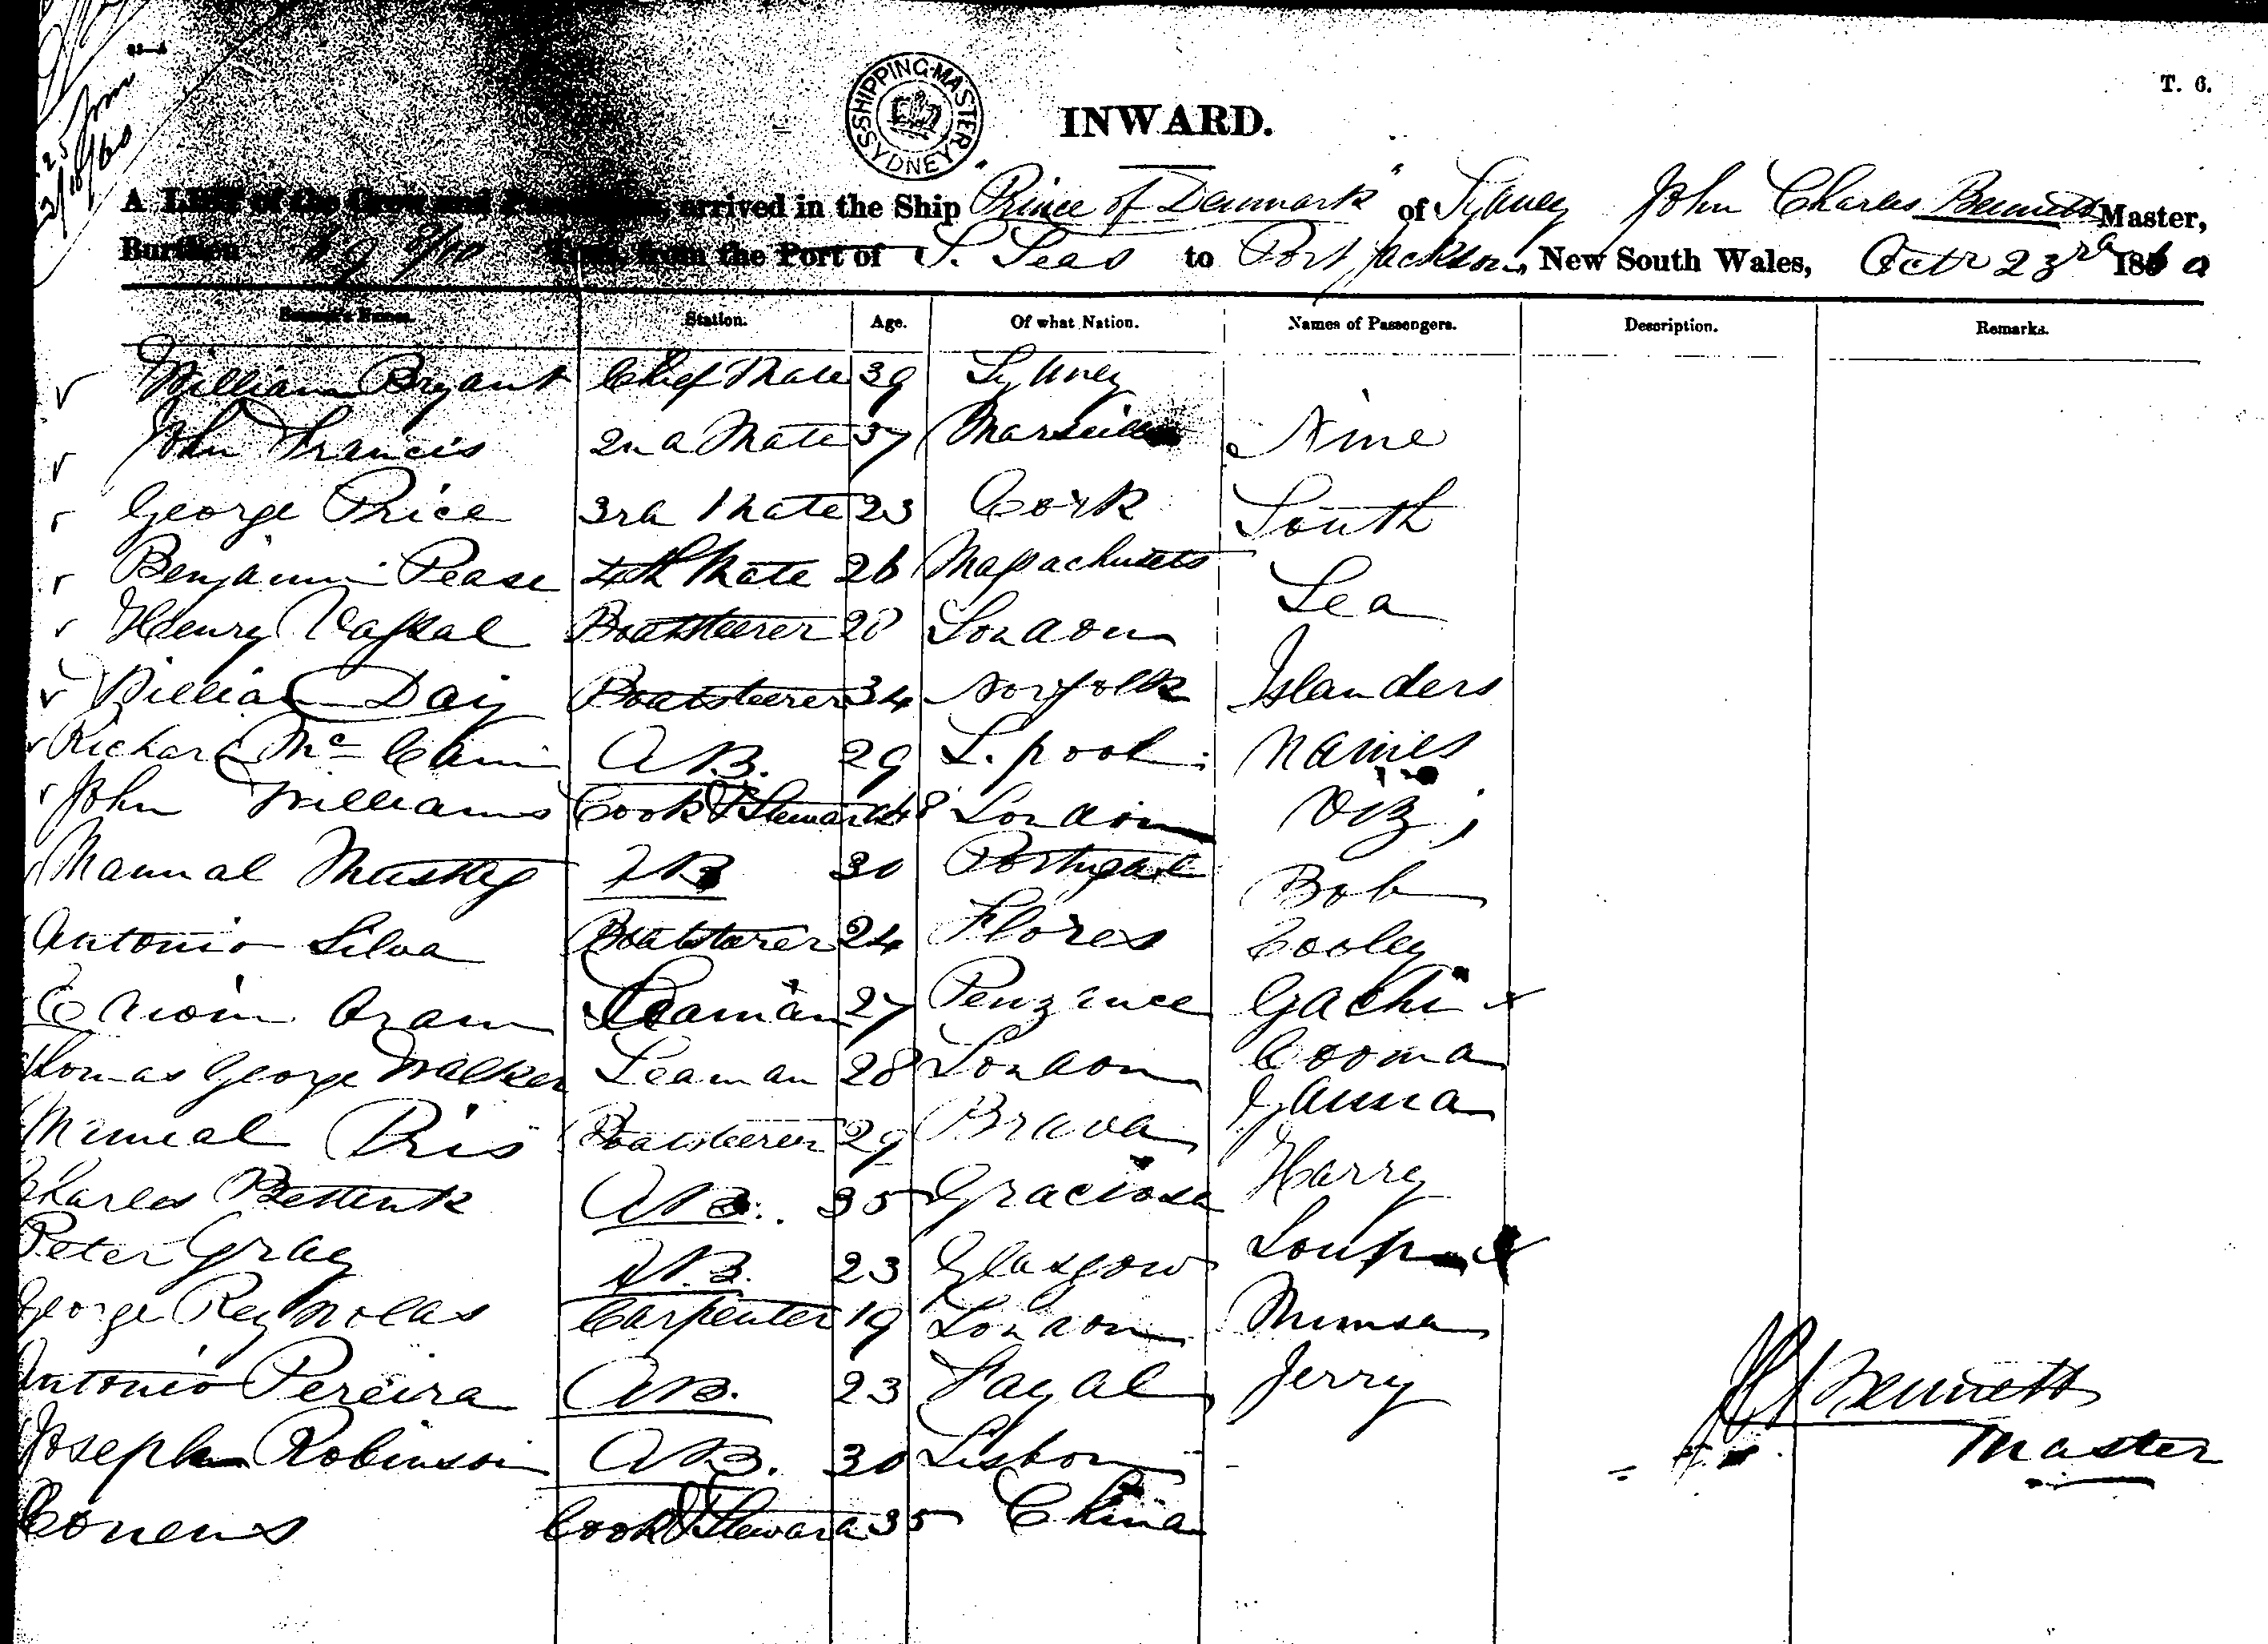 T. 6.
SHIPPING MASTER SYDNEY
INWARD.
A List of the Crew and Passengers, arrived in the Ship "Prince of Denmark" of Sydney John Charles Bennett Master,
Burthen Tons, from the Port of S. Seas to Port Jackson, New South Wales, Octr 23rd 1860
Seamen's Names. Station. Age. Of what Nation. Names of Passengers. Description. Remarks.
William Bryant Chief Mate 39 Sydney
John Francis 2nd Mate 37 Marseilles Nine
George Price 3rd Mate 23 Cork South
Benjamin Pease 4th Mate 26 Massachusets Sea
Henry Boatsteerer 28 London
William Day Boatsteerer 34 Norfolk Islanders
Richard McCann A.B. 29 L.pool names
John Williams Cook & Steward 48 London viz;
Manual A.B. 30 Portugal Bob
Antonio Silva Boatsteerer 24 Flores Cooley
Aram Seaman 27 Penzance Gachi x
Thomas George Walker Seaman 28 London Cooma
Manual Boatsteerer 29 Brava
Charles A.B. 35 Graciosa Harry
Peter Gray A.B. 23 Glasgow
George Reynolds Carpenter 19 London
Antonio Pereira A.B. 23 Fayal Jerry
Joseph Robinson A.B. 30 Lisbon
Cook & Steward 35 China
J C Bennett
Master